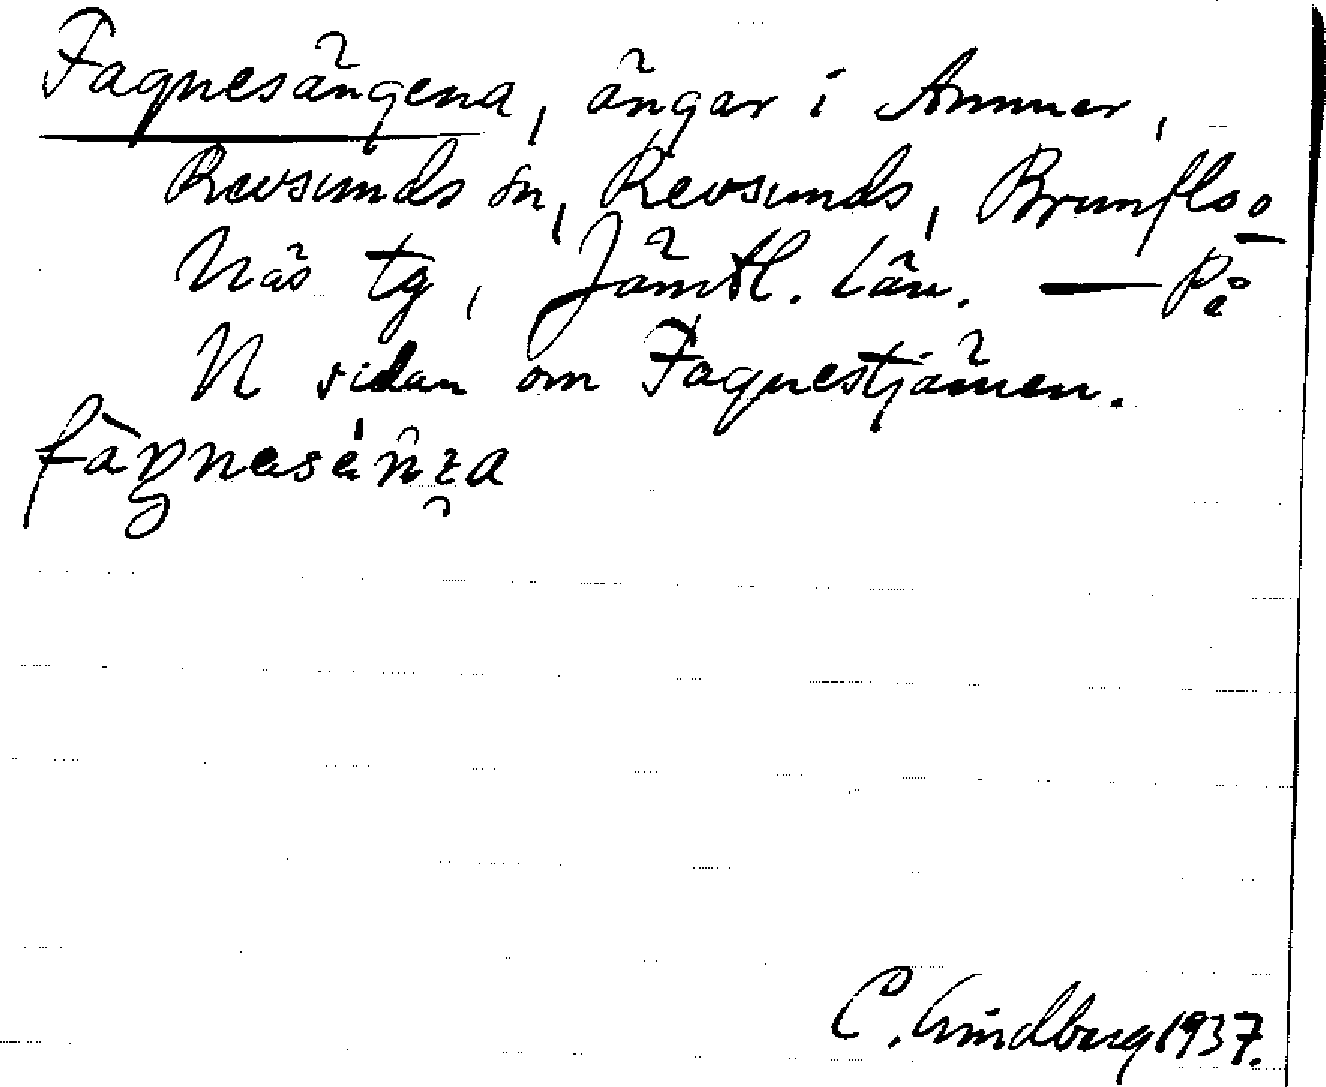 Fagnesängena, ängar i Ammer,
Revsunds sn, Revsunds, Brunflo o
Näs tg, Jämtl. län. — På
N sidan om Fagnestjärnen.
C. Lindberg 1937.